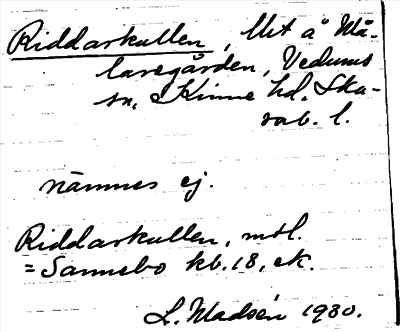 Riddarkullen, Utt å Må-
laregården, Vedums
sn, Kinne hd. Ska-
rab. l.
nämnes ej.
Riddarkullen, mtl.
= Sannebo kb. 18, ek.
L. Madsén 1930.